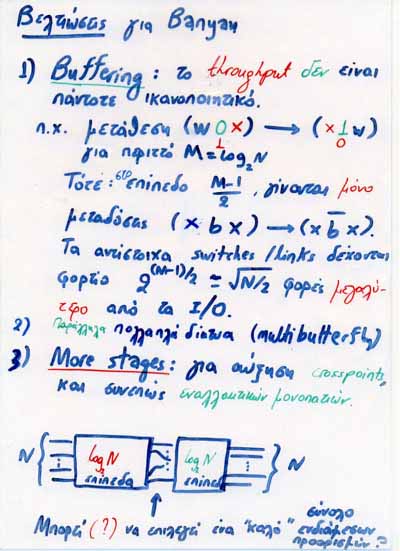 Βελτιώσεις για Banyan
1) Buffering : το throughput δεν είναι
πάντοτε ικανοποιητικό.
π.χ. μετάθεση (w 0 x) → (x 1 w)
1 0
για περιττό M = log₂N
Τότε : στο επίπεδο (M-1)/2 , γίνονται μόνο
μεταδόσεις (x b x) → (x b̄ x).
Τα αντίστοιχα switches / links δέχονται
φορτίο 2^((M-1)/2) ≃ √(N/2) φορές μεγαλύ-
τερο από τα I/O.
2) Παράλληλα πολλαπλά δίκτυα (multibutterfly)
3) More stages : για αύξηση crosspoints,
και συνεπώς εναλλακτικών μονοπατιών.
N { log₂N log₂N } N
επίπεδα επίπεδα
Μπορεί (?) να επιλεγεί ένα "καλό" σύνολο
ενδιάμεσων
προορισμών ?